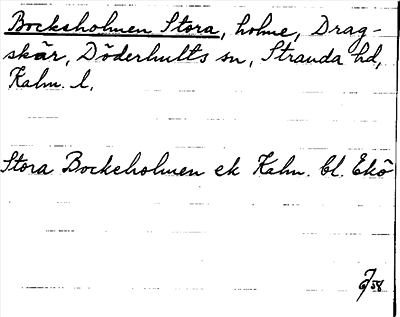 Bocksholmen Stora, holme, Drag-
skär, Döderhults sn, Stranda hd,
Kalm. l.
Stora Bockeholmen ek Kalm. bl. Ekö